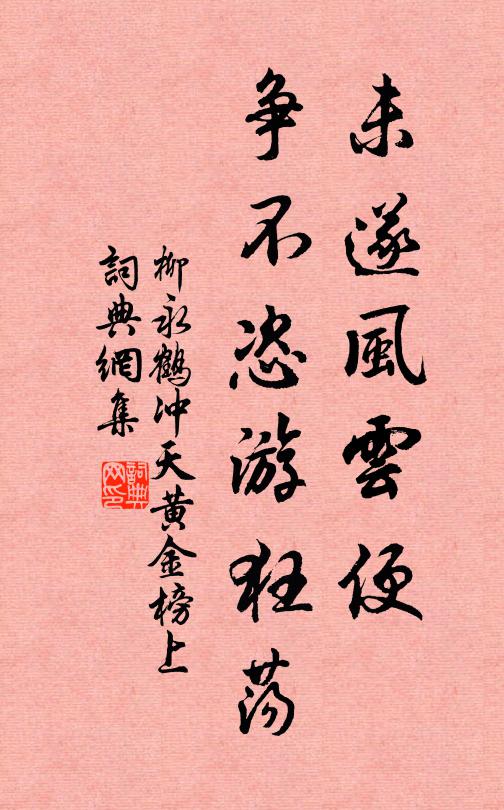 未遂風雲便
争不恣游狂荡
柳永鶴冲天黄金榜上
詞典網集
詞典
网印